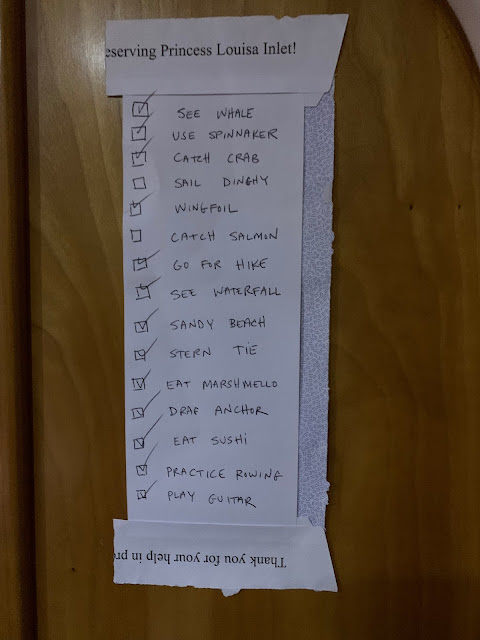 eserving Princess Louisa Inlet!
SEE WHALE
USE SPINNAKER
CATCH CRAB
SAIL DINGHY
WINGFOIL
CATCH SALMON
GO FOR HIKE
SEE WATERFALL
SANDY BEACH
STERN TIE
EAT MARSHMELLO
DRAG ANCHOR
EAT SUSHI
PRACTICE ROWING
PLAY GUITAR
Thank you for your help in pr